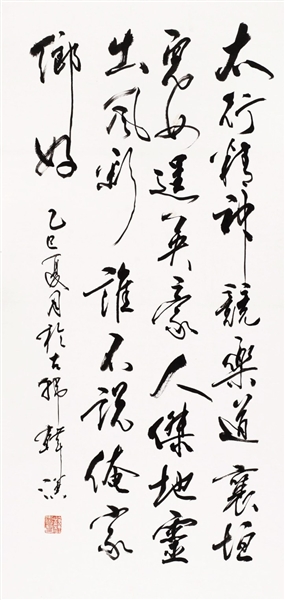 太行精神競樂道襄垣
兒女逞英豪人傑地靈
出風彩誰不説俺家
鄉好
乙巳夏月於古韓